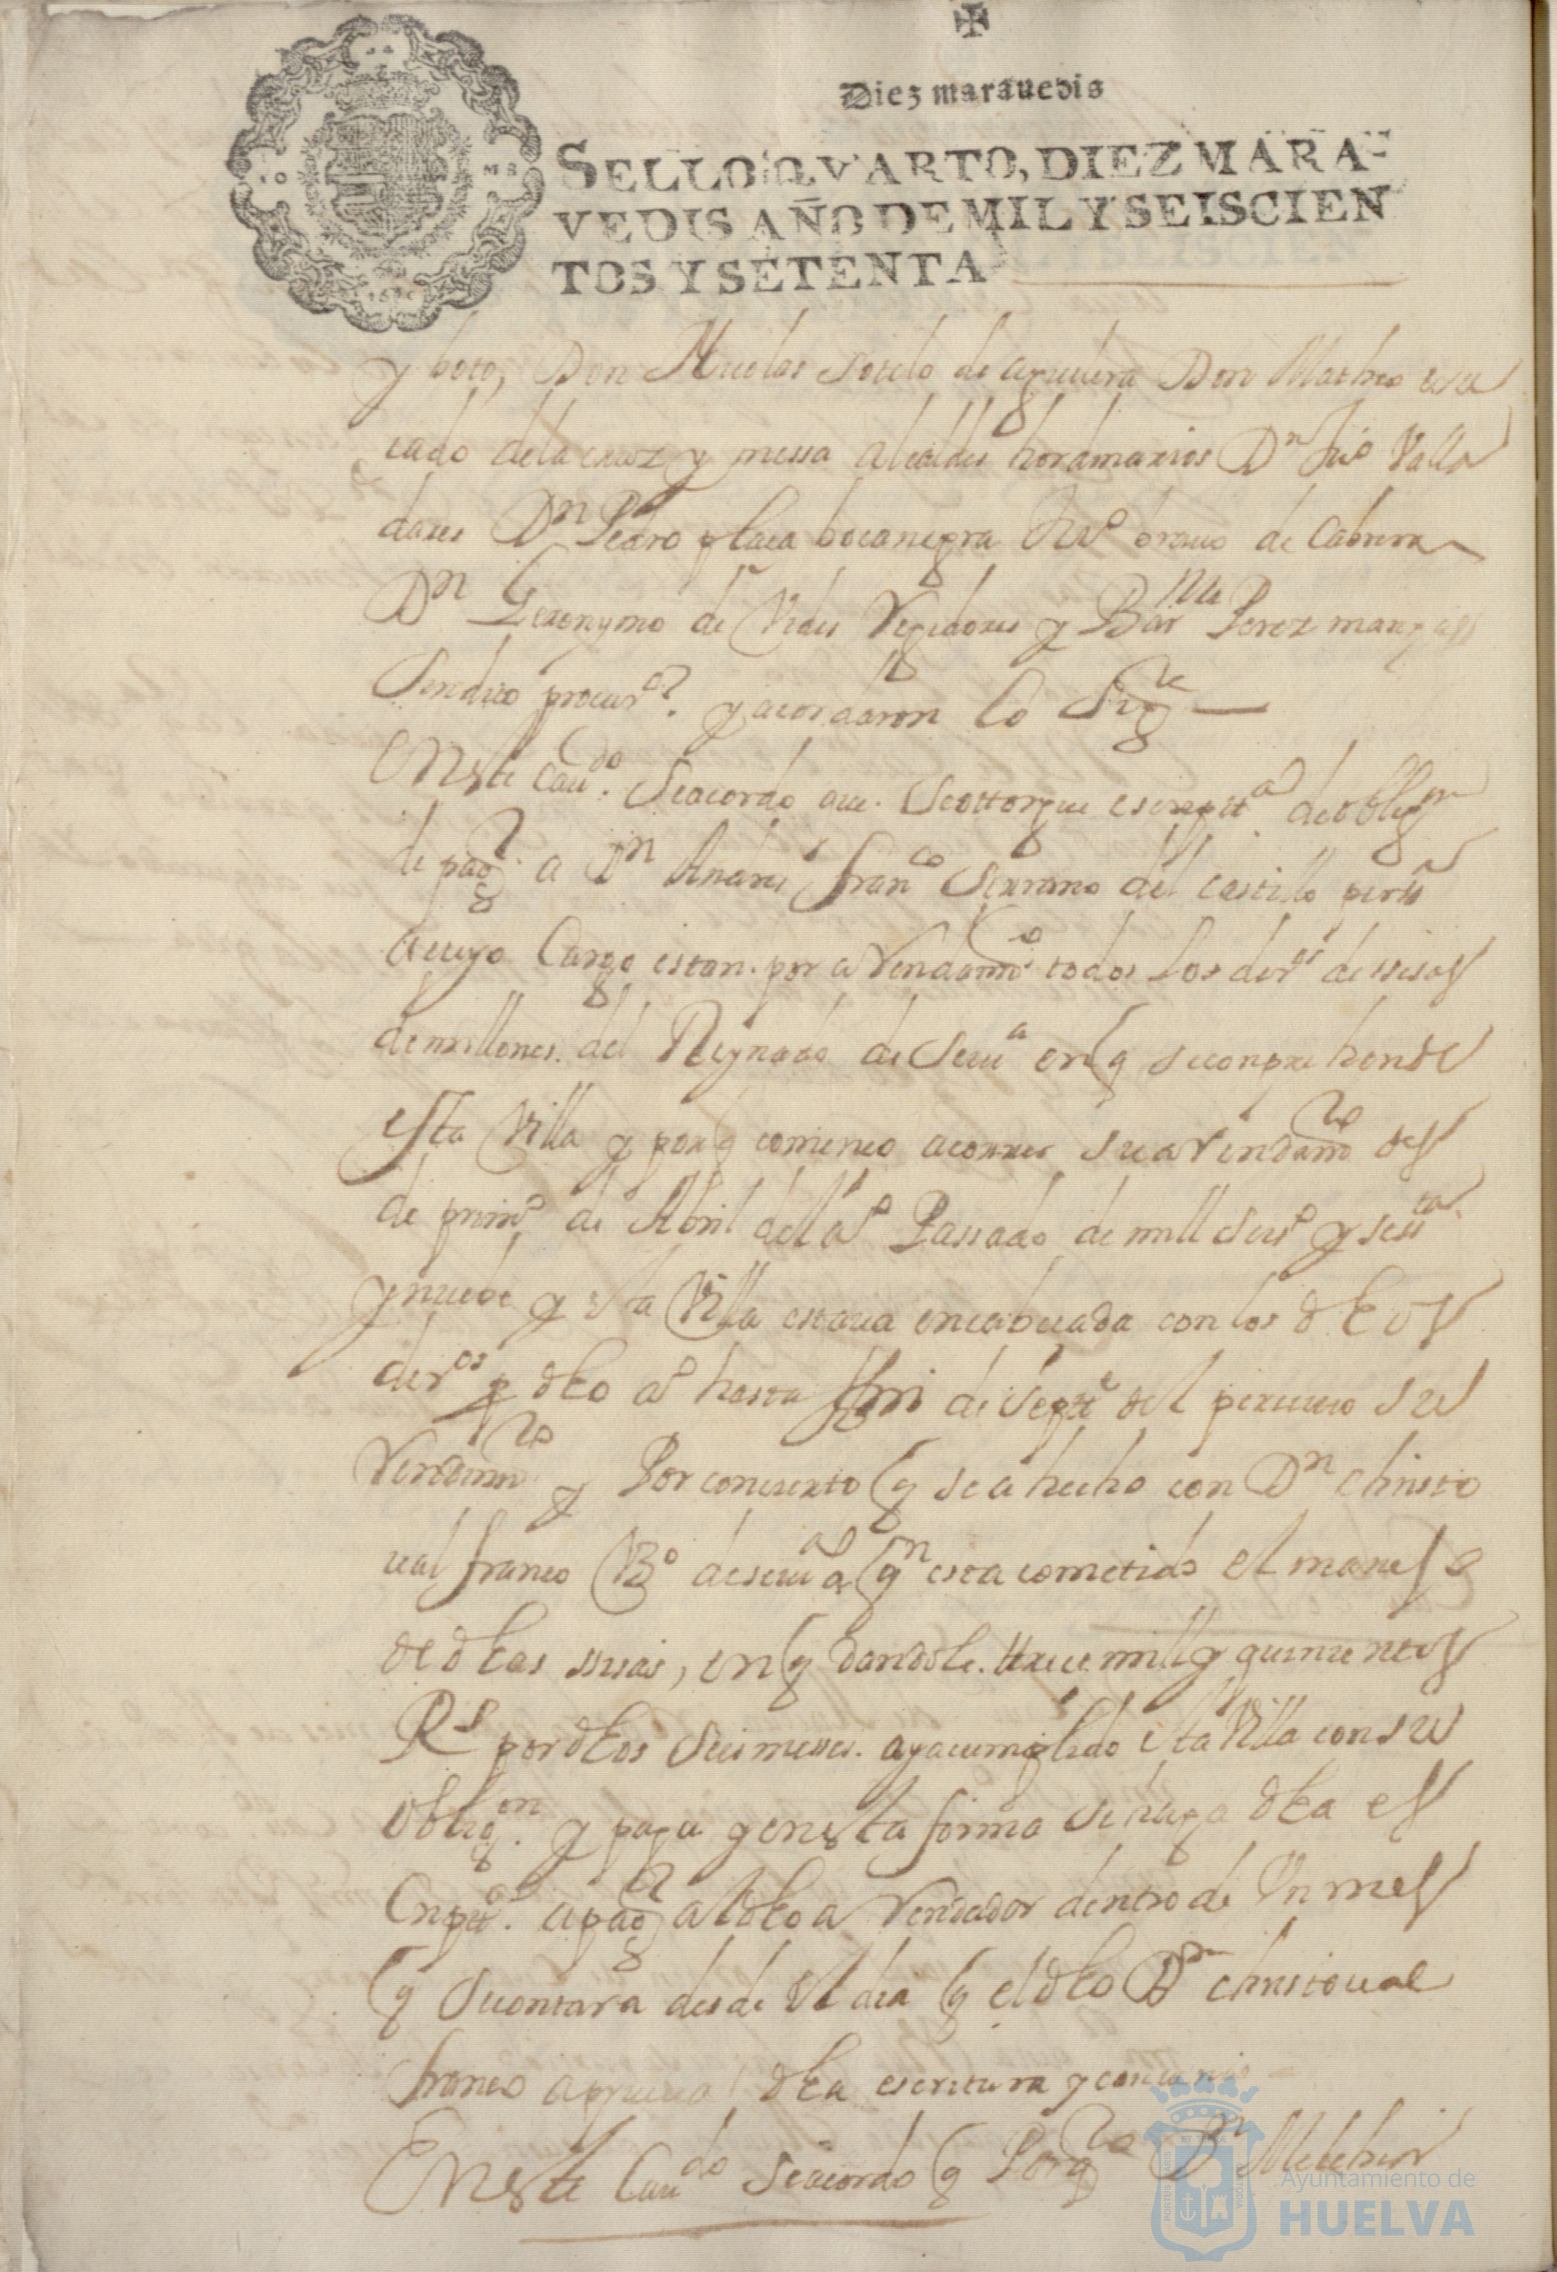 ✠
Diez marauedis
SELLO QVARTO, DIEZ MARA-
VEDIS AÑO DE MIL Y SEISCIEN
TOS Y SETENTA
y boto, Don Nicolas Sotelo de Don Matheo
cado de la cruz y messa alcaldes hordinarios Dn Juo Valla
dares Dn Pedro placa bocanegra brauo de Cabrera
Dn Geronymo de Vides Regidores y Barme Perez
Sindico procuror. y acordaron lo Sigte
En este Caudo. Seacordo que. Seottorgue escriptta de obligon
de pago a Dn Andres Franco Serrano del castillo
a cuyo Cargo estan. por aRendamto todos Los deros de sisas
de millones. del Reynado de Seua en q se conprehende
esta Villa y por q comenco a correr su aRendamo des
de primo de Abril del ao Passado de mill seiso y sesta
y nuebe y esta Villa estaua encabecada con los dhos
deros dho ao hasta fin de septe del su
Rendimto y Por concierto q se a hecho con Dn Christo
ual franco Vo de seua a qn esta cometido el manejo
de dhas sisas, en q dandole. trece mill y quinientos
Rs por dhos Seis messes. aya cumplido esta Villa con su
obligon. y paga y en esta forma se haga dha es
Cripta. a pagar al dho aRendador dentro de Un mes
q Secontara desde el dia q el dho Dn christoual
franco aprueua dha escritura y
En este Caudo Seacordo q Por qto Dn Melchior
Ayuntamiento de
HUELVA